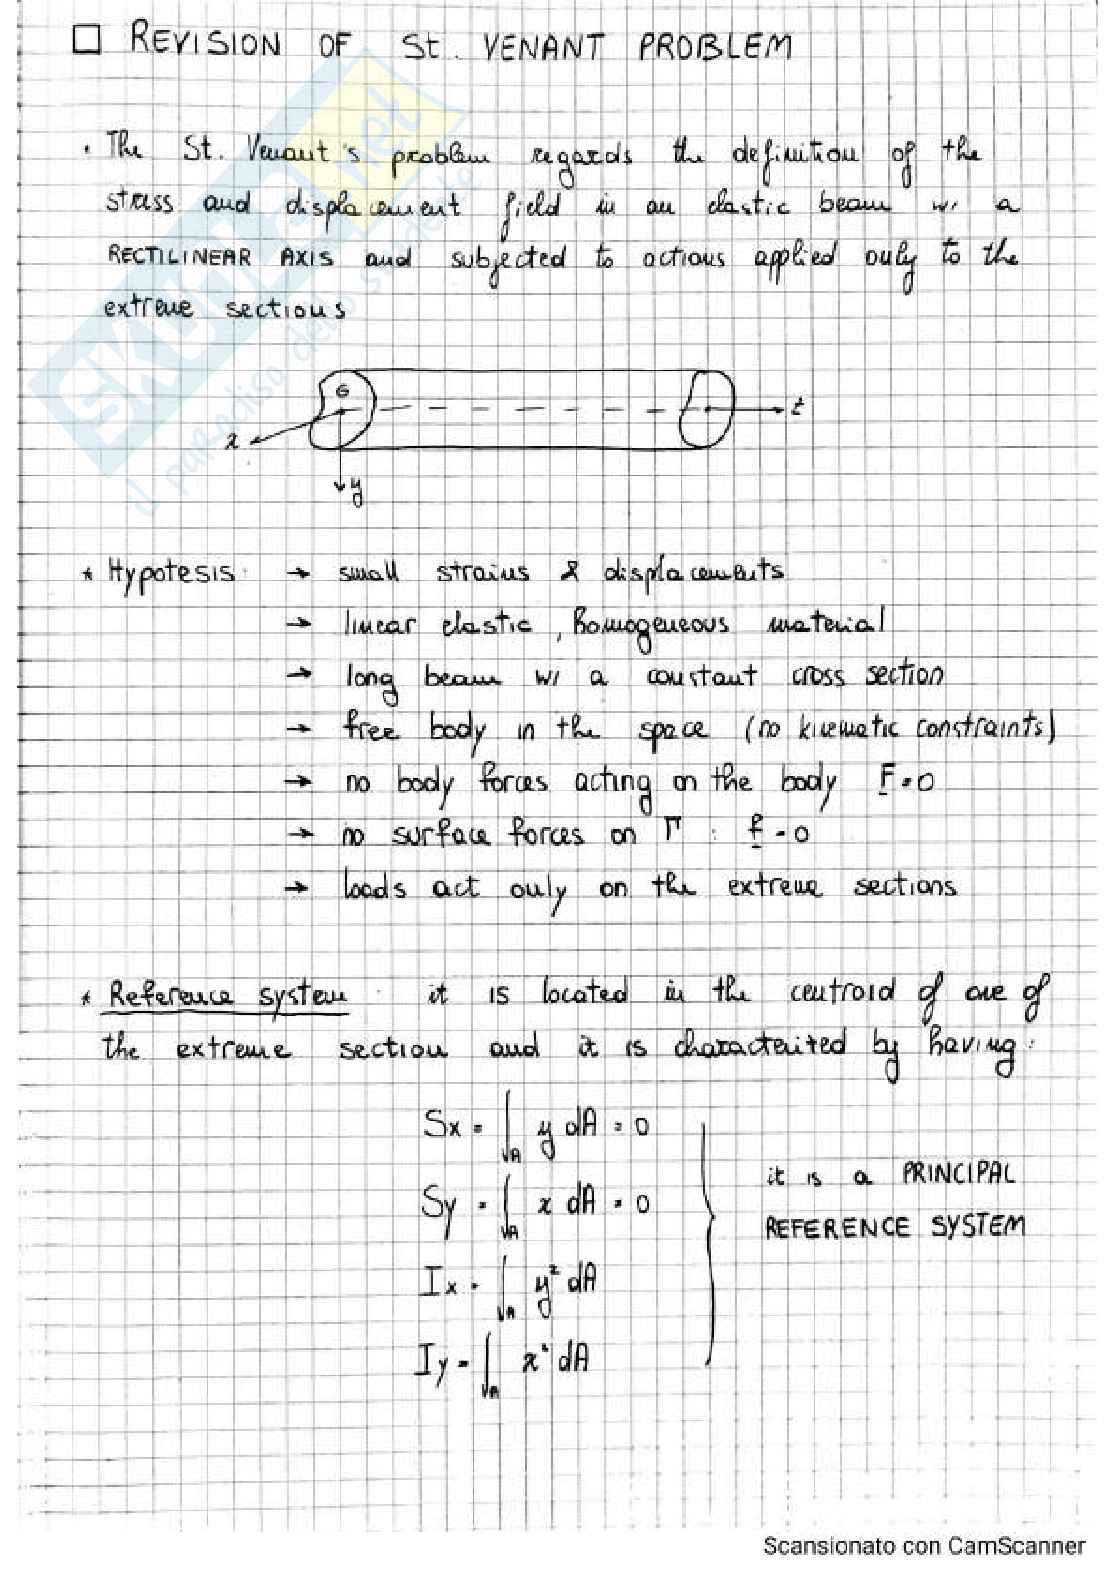 □ REVISION OF St. VENANT PROBLEM
. The St. Venant's problem regards the definition of the
stress and displacement field in an elastic beam w/ a
RECTILINEAR AXIS and subjected to actions applied only to the
extreme sections
G
z
x
y
* Hypotesis: → small strains & displacements
→ linear elastic, homogeneous material
→ long beam w/ a constant cross section
→ free body in the space (no kinematic constraints)
→ no body forces acting on the body F = 0
→ no surface forces on Γ : f = 0
→ loads act only on the extreme sections
* Reference system : it is located in the centroid of one of
the extreme section and it is characterized by having:
Sx = ∫A y dA = 0
Sy = ∫A x dA = 0
Ix = ∫A y² dA
Iy = ∫A x² dA
it is a PRINCIPAL
REFERENCE SYSTEM
skuola.net
il paradiso dello studente
Scansionato con CamScanner